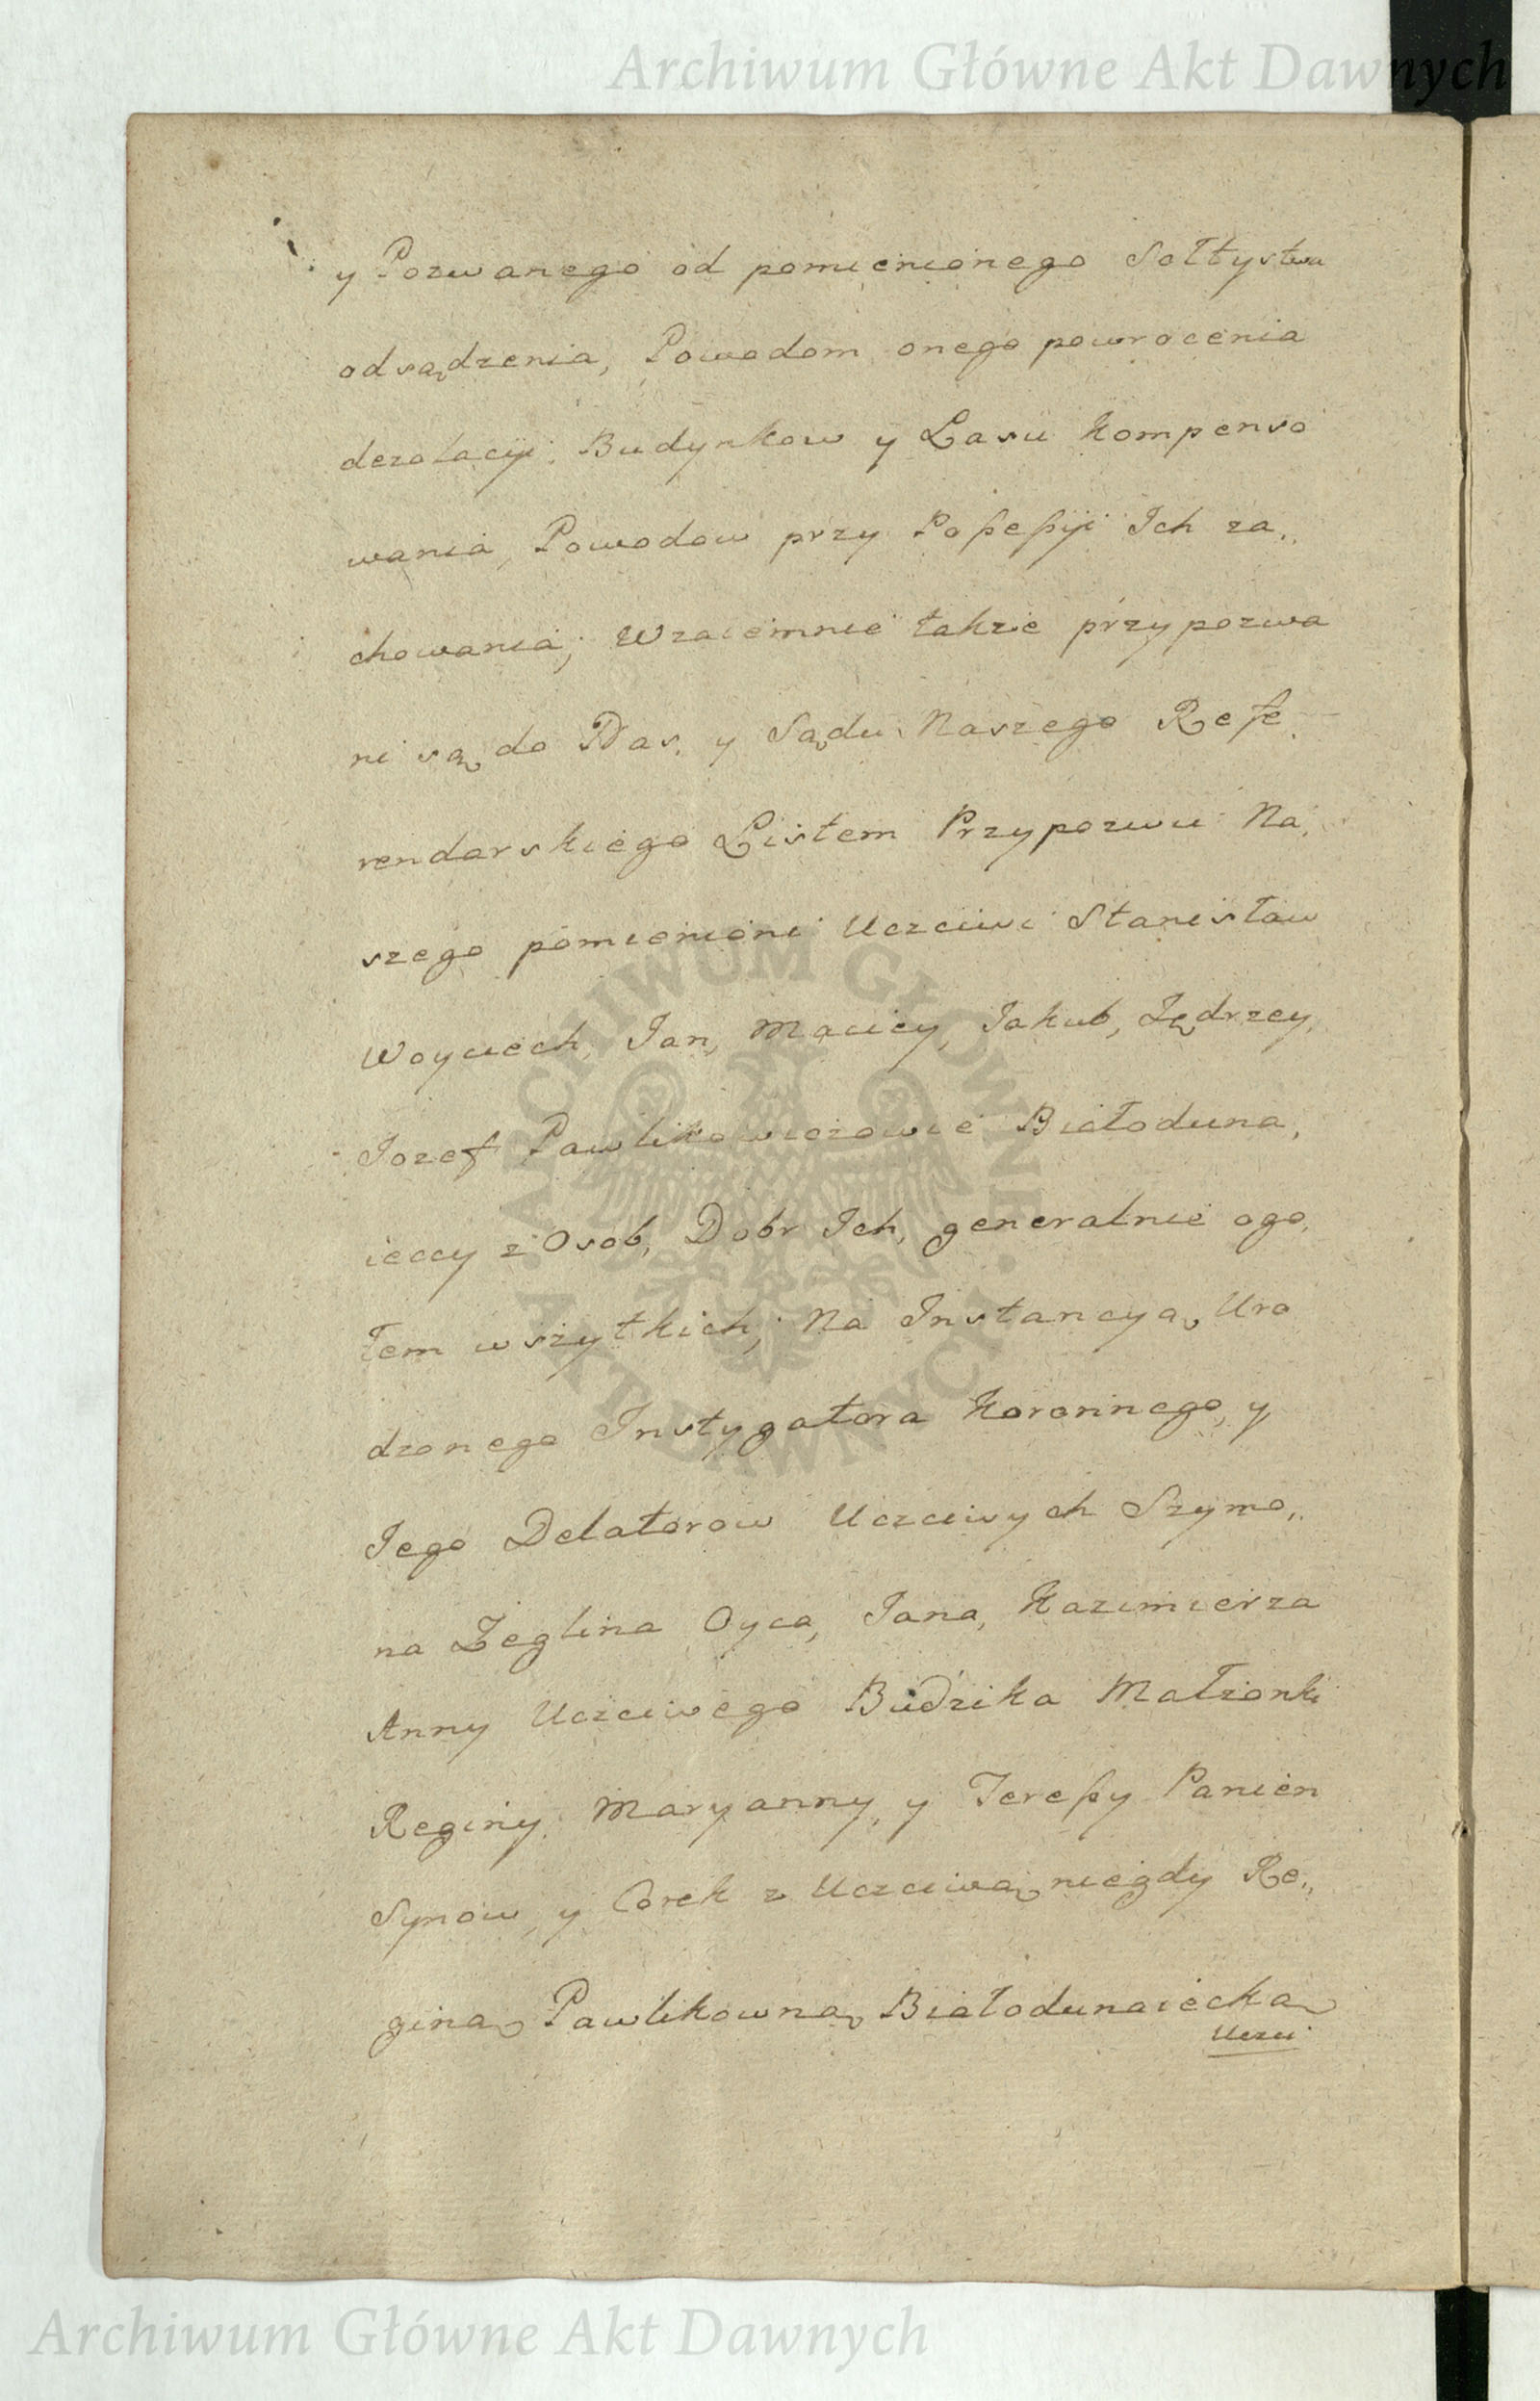 Archiwum Główne Akt Dawnych
y Pozwanego od pomienionego Sołtystwa
odsądzenia, Powodom onego powrocenia
dezolacyi Budynkow y Lasu kompenso
wania, Powodow przy Poßeßyi Ich za„
chowania; Wzaiemnie także przypozwa
ni są do Nas, y Sądu Naszego Refe
rendarskiego Listem Przypozwu Na,
szego pomienioni Uczciwi Stanisław
Woyciech, Jan, Maciey, Jakub, Jędrzey,
Jozef Pawlikowiczowie Białoduna,
ieccy z Osob, Dobr Ich, generalnie ogo,
łem wszytkich; Na Instancyą Uro
dzonego Instygatora Koronnego, y
Jego Delatorow Uczciwych Szymo„
na Zeglina Oyca, Jana, Kazimierza
Anny Uczciwego Budzika Małżonki
Reginy, Maryanny, y Tereßy Panien
Synow, y Corek z Uczciwą niegdy Re„
giną Pawlikowną Białodunaiecką
Uczci
ARCHIWUM GŁÓWNE AKT DAWNYCH
Archiwum Główne Akt Dawnych